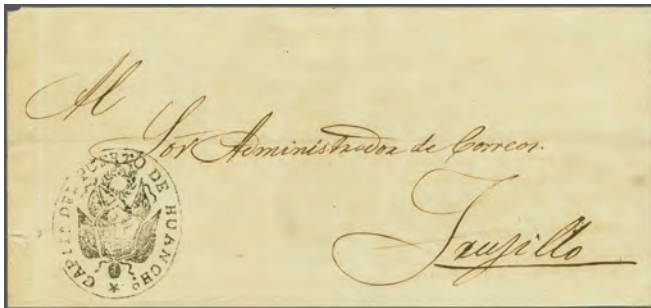 Al
Sor Administrador de Correos.
Trujillo
CAPIA DEL PUERTO DE HUANCHO